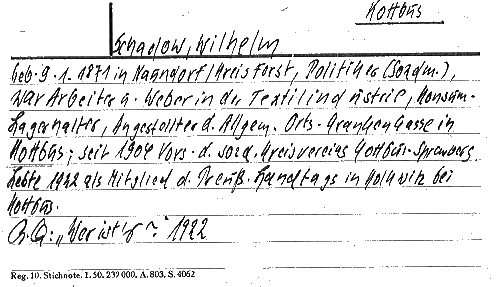 Kottbus
Schadow, Wilhelm
geb. 9. 1. 1871 in Naundorf/Kreis Forst, Politiker (Sozdm.),
war Arbeiter u. Weber in der Textilindustrie, Konsum-
Lagerhalter, Angestellter d. Allgem. Orts-Krankenkasse in
Kottbus; seit 1904 Vors. d. sozd. Kreisvereins Cottbus-Spremberg
Lebte 1922 als Mitglied d. Preuß. Landtags in Kolkwitz bei
Kottbus.
B.Q: „Wer ist's?" 1922
Reg. 10. Stichnote. 1. 50. 239000. A. 803. S. 4062